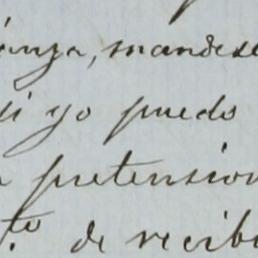 anza, mandese
si yo puedo
pretension
to. de recibi